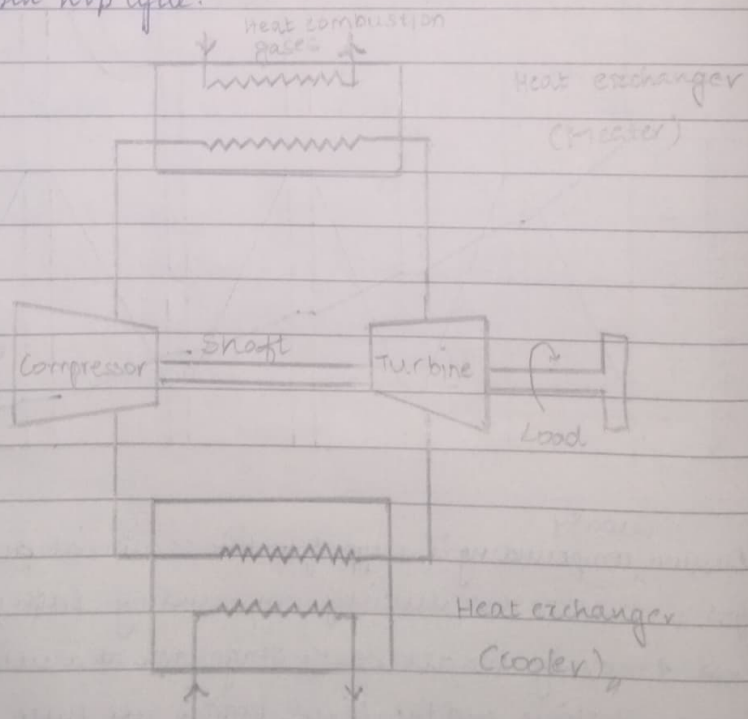 Heat combustion
gases
Heat exchanger
(Heater)
Compressor
Shaft
Turbine
Load
Heat exchanger
(cooler)